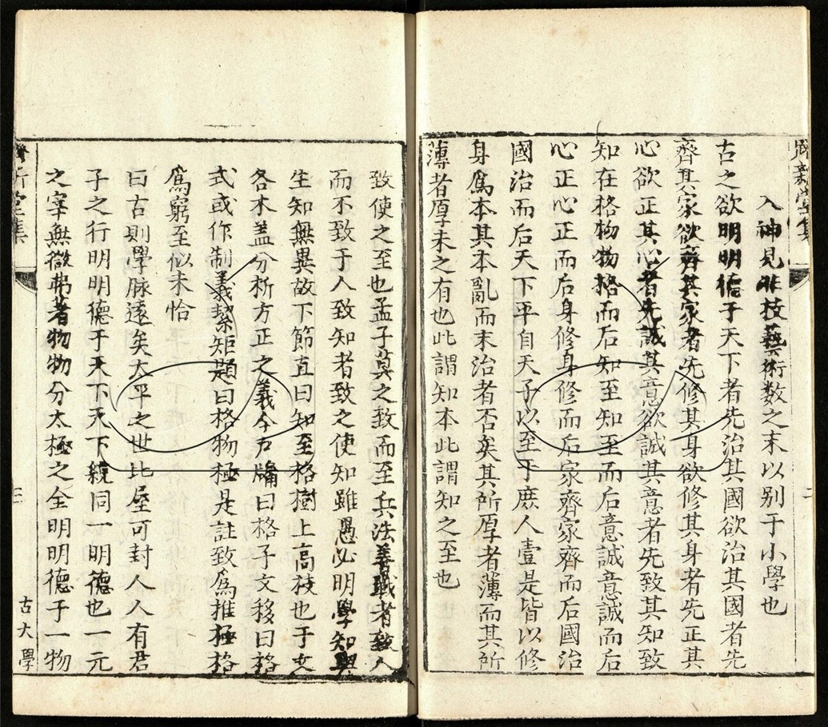 新堂集
入神見非技藝術數之末以別于小學也
古之欲明明德于天下者先治其國欲治其國者先
齊其家欲齊其家者先修其身欲修其身者先正其
心欲正其心者先誠其意欲誠其意者先致其知致
知在格物物格而后知至知至而后意誠意誠而后
心正心正而后身修身修而后家齊家齊而后國治
國治而后天下平自天子以至于庶人壹是皆以修
身爲本其本亂而末治者否矣其所厚者薄而其所
薄者厚未之有也此謂知本此謂知之至也
致使之至也孟子莫之致而至兵法善戰者致人
而不致于人致知者致之使知雖愚必明學知與
生知無異故下節直曰知至格樹上高枝也于文
各木盖分析方正之義今戸牗曰格子文移曰格
式或作制義絜矩題曰格物極是註致爲推極格
爲窮至似未恰
曰古則學脉遠矣大平之世比屋可封人人有君
子之行明明德于天下天下統同一明德也一元
之宰無微弗著物物分太極之全明明德于一物
堂集
古大學